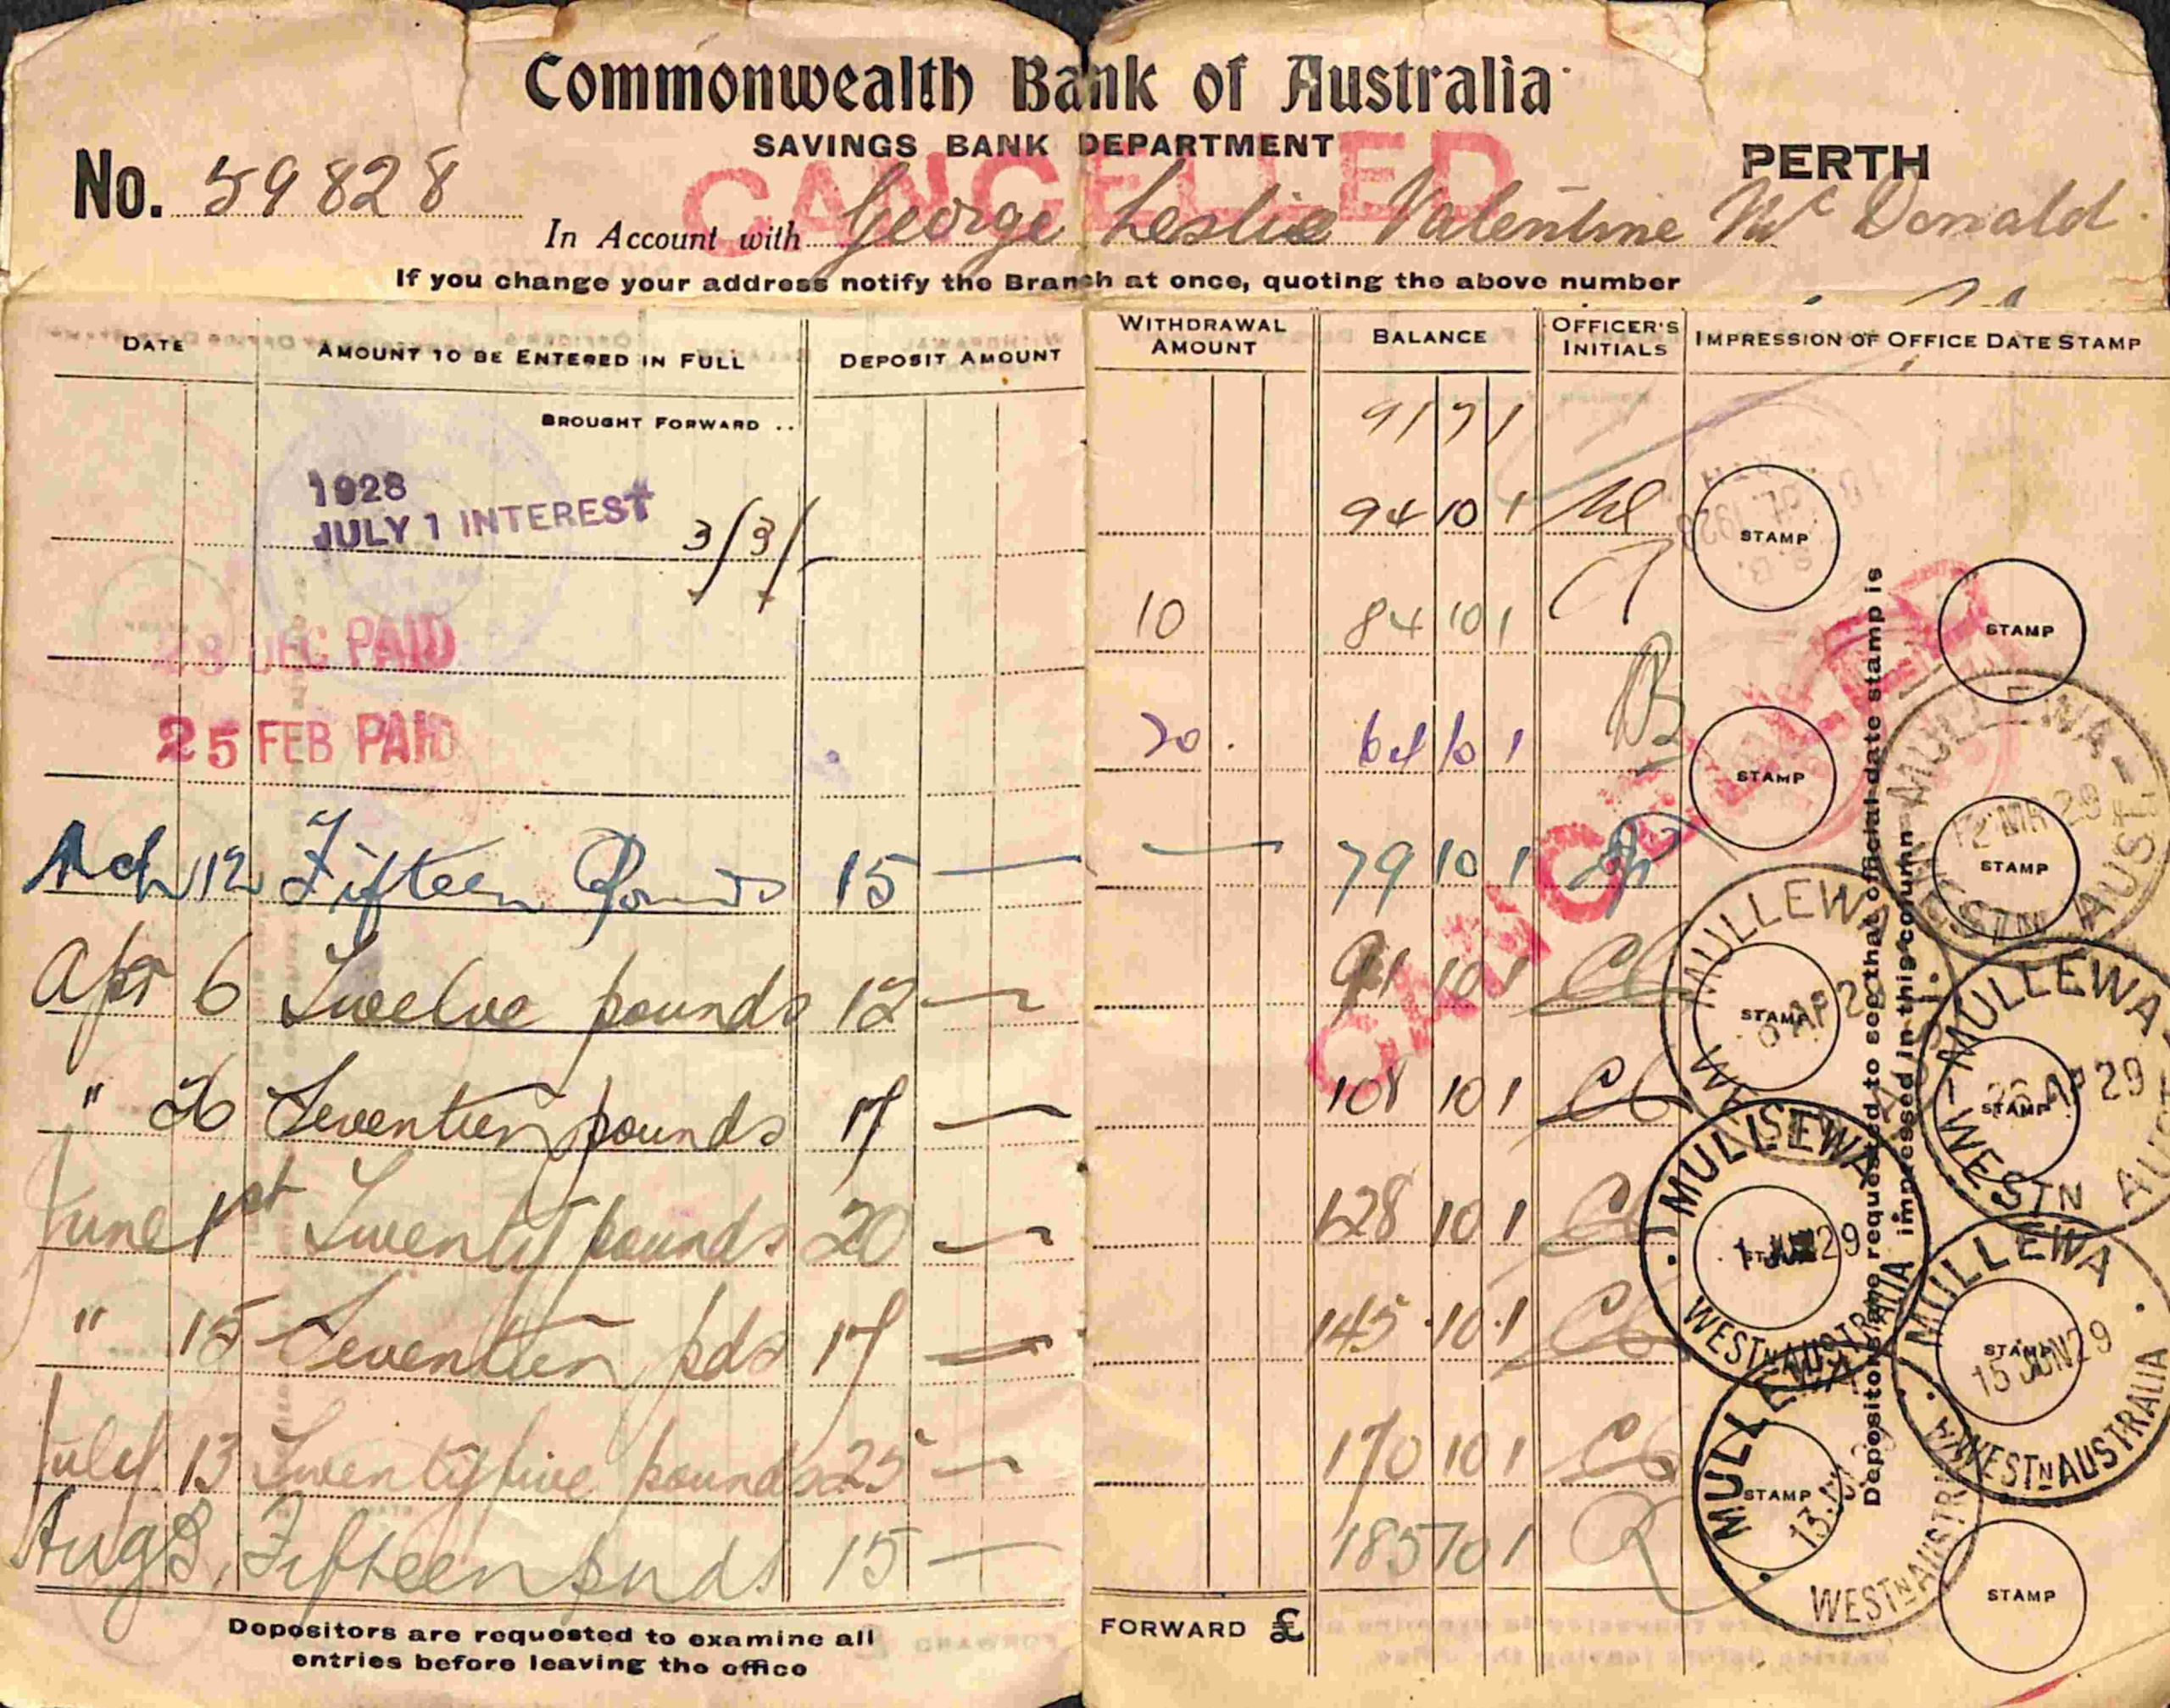 Commonwealth Bank of Australia
SAVINGS BANK DEPARTMENT
PERTH
CANCELLED
No. 59828
In Account with George Leslie Valentine McDonald
If you change your address notify the Branch at once, quoting the above number
DATE AMOUNT TO BE ENTERED IN FULL DEPOSIT AMOUNT WITHDRAWAL AMOUNT BALANCE OFFICER'S INITIALS IMPRESSION OF OFFICE DATE STAMP
BROUGHT FORWARD .. 91 7 1
1928
JULY 1 INTEREST 3/3/- 94 10 1
STAMP
28 DEC PAID 10 84 10 1
STAMP
25 FEB PAID 20 . 64 10 1
STAMP
CANCELLED
Mch 12 Fifteen Pounds 15 — — 79 10 1
STAMP
MULLEWA
12 MR 29
WESTN AUST
Apr 6 Twelve pounds 12 — 91 10 1 CB
STAMP
MULLEWA
6 AP 29
" 26 Seventeen pounds 17 — 108 10 1 CB
STAMP
MULLEWA
26 AP 29
WESTN AUST
June 1st Twenty pounds 20 — 128 10 1 CB
MULLEWA
1 JUN 29
WESTN AUSTRALIA
" 15 Seventeen pds 17 — 145 10 1 CB
STAMP
MULLEWA
15 JUN 29
WESTN AUSTRALIA
July 13 Twentyfive pounds 25 — 170 10 1 CB
STAMP
MULLEWA
13
WESTN AUSTRALIA
Aug 8, Fifteen pnds 15 — 185 10 1 R
STAMP
Depositors are requested to see that official date stamp is
impressed in this column
FORWARD £
Depositors are requested to examine all
entries before leaving the office